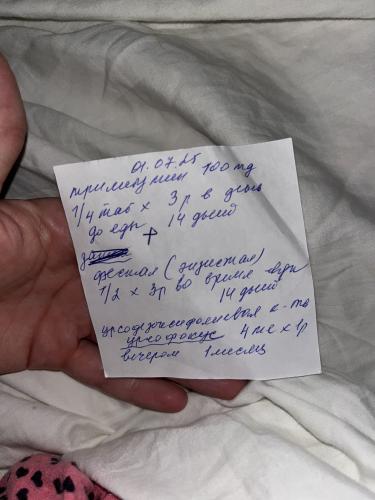 01.07.25
тримедицин 100 mg
1/4 таб x 3 р в день
до еды 14 дней
+
фестал (энзистал)
1/2 x 3р во время еды
14 дней
урсодезоксифолиевая к-та
урсофокус 4 мл x 1р
вечером 1 месяц